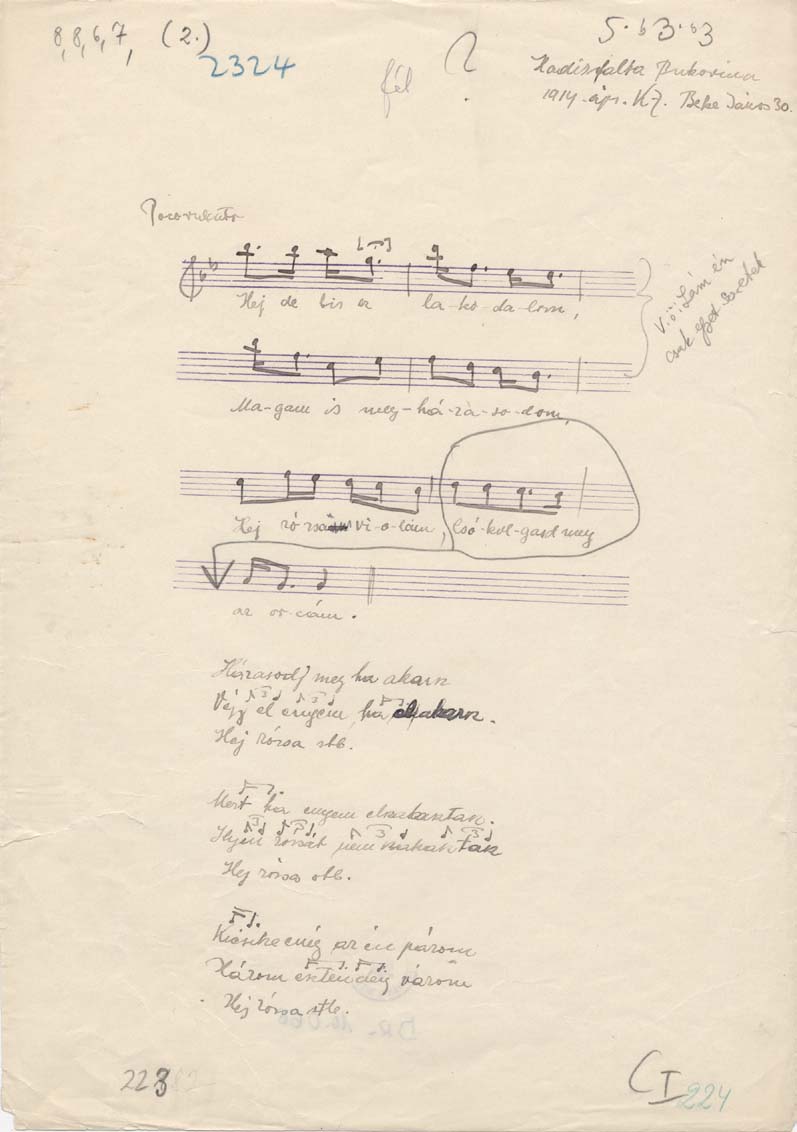 8, 8, 6, 7, (2.)
2324
fél ?
5 · b3 · b3
Hadikfalva Bukovina
1914 ápr. K.Z. Beke János 30.
Poco rubato
Hej de bis a la-ko-da-lom,
V.ö: Lám én
csak egyet szeretek
Ma-gam is meg-há-za-so-dom,
Hej ró-zsám vi-o-lám, Csó-kol-gasd meg
az or-cám.
Házasodj meg ha akarsz
Végy el engem, ha akarsz.
Hej rózsa stb.
Mert ha engem elszalasztasz.
Ilyen rózsát nem szakasztasz
Hej rózsa stb.
Kicsike még az én párom
Három esztendeig várom
Hej rózsa stb.
223
C I
224